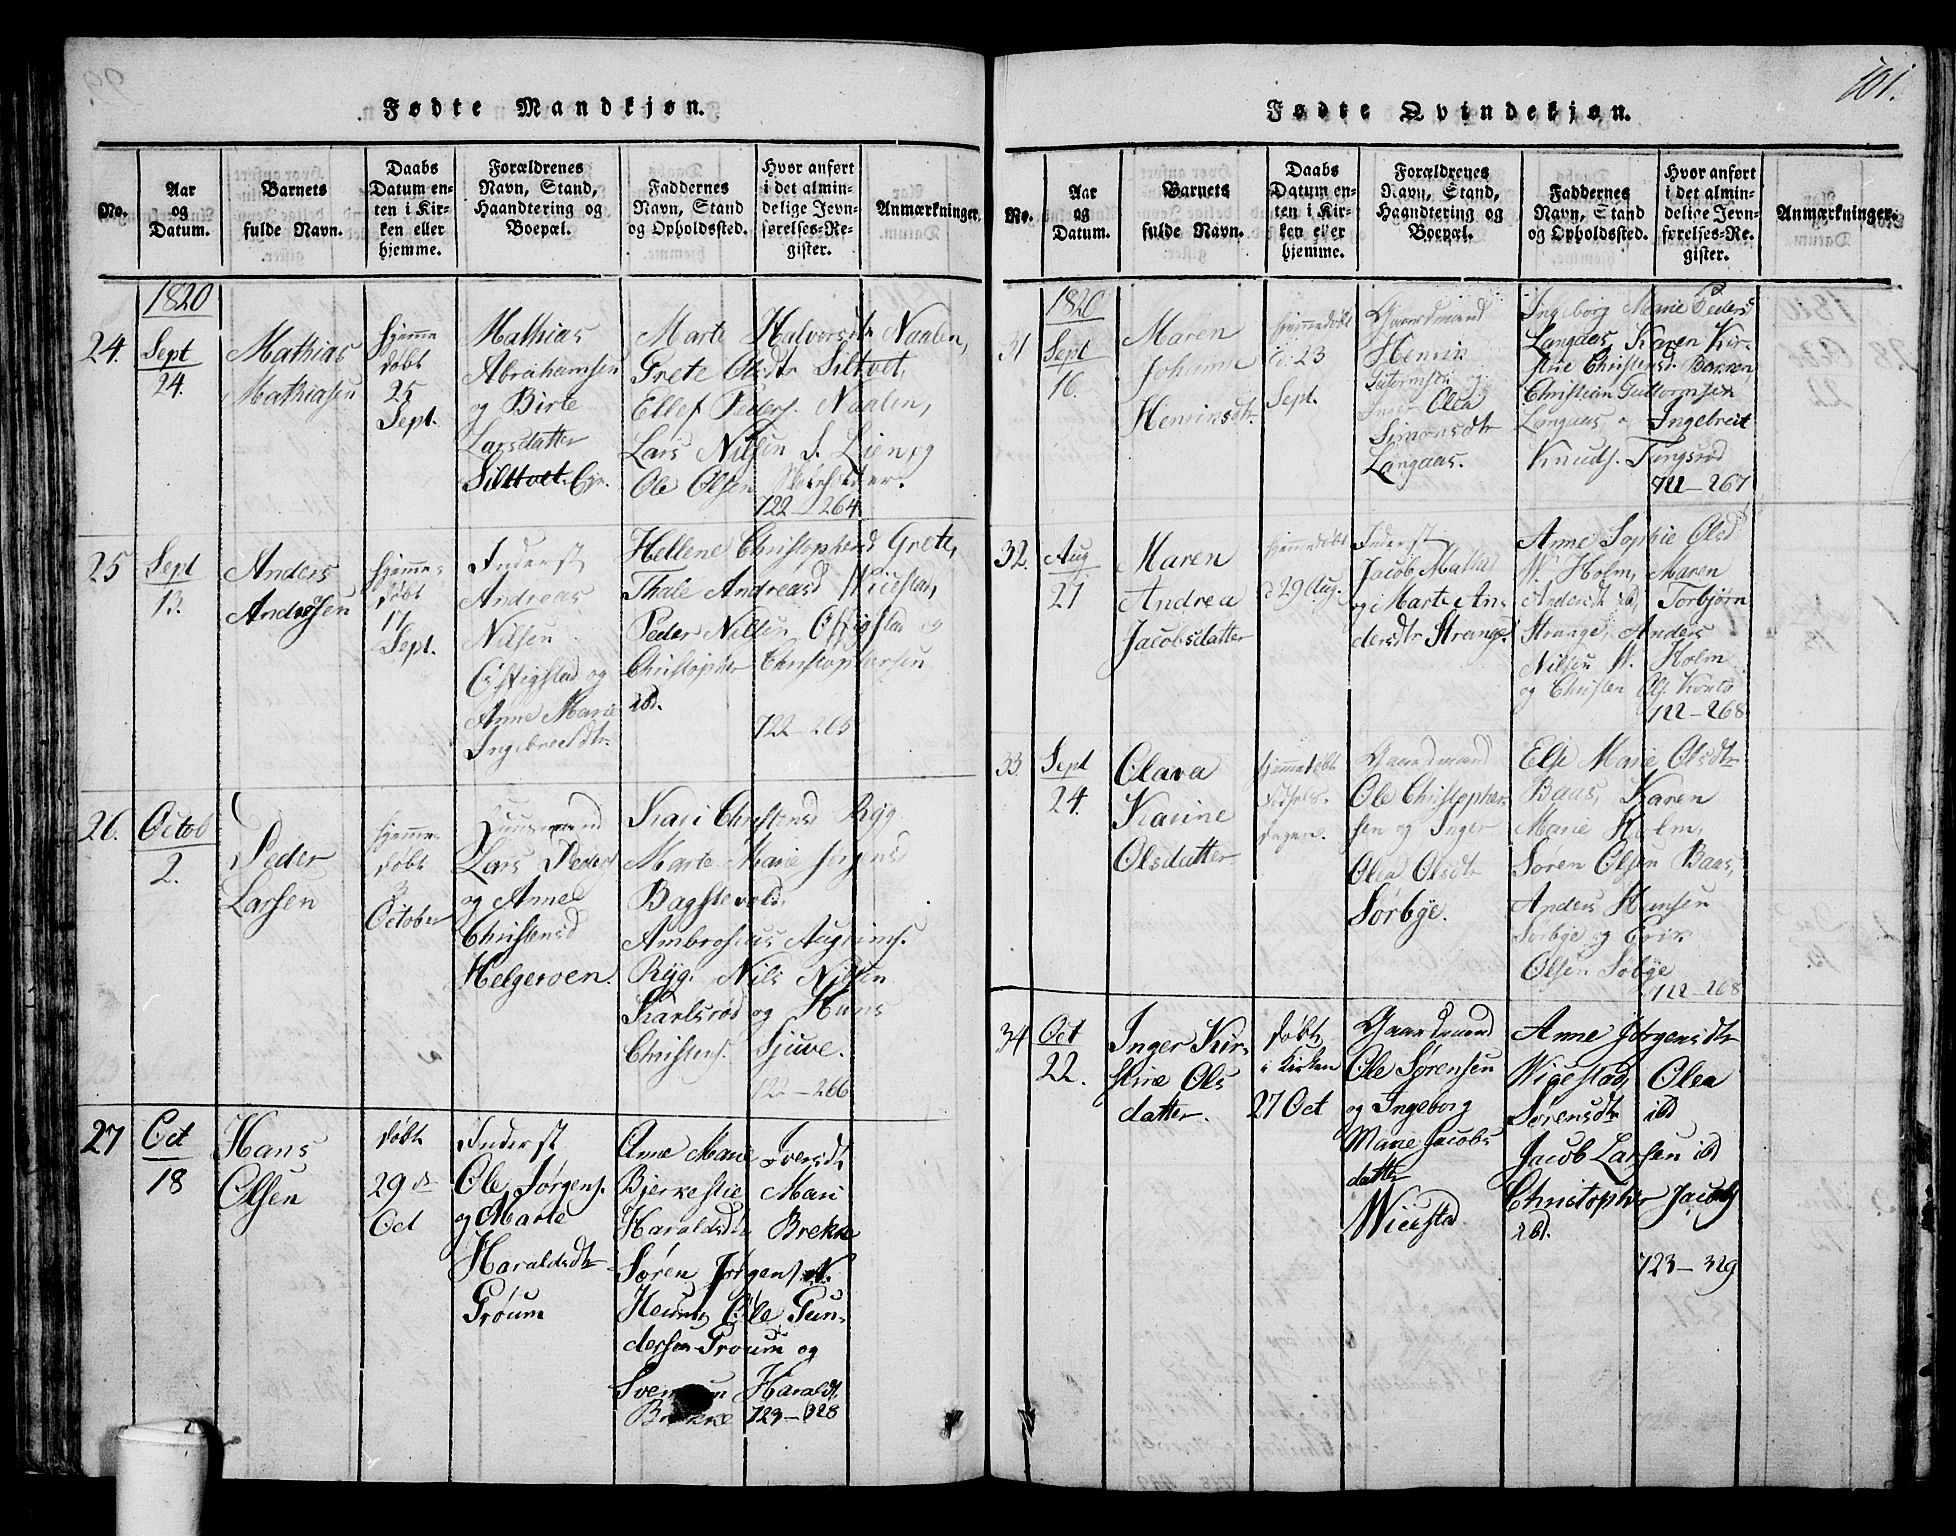 101.
Fødte Mandkjøn.
No.
Aar
og
Datum.
Barnets
fulde Navn.
Daabs
Datum en-
ten i Kir-
ken eller
hjemme.
Forældrenes
Navn, Stand,
Haandtering og
Boepæl.
Faddernes
Navn, Stand
og Opholdssted.
Hvor anført
i det almin-
delige Jevn-
førelses-Re-
gister.
Anmærkninger.
1820
24.
Sept
24.
Mathias
Mathiasen
hjemme
døbt
25
Sept.
Mathias
Abrahamsen
og Birte
Larsdatter
Siltvet. Eje.
Marte Halvorsdtr Naalen,
Grete Olsdtr Siltvet,
Ellef Peders. Naalen,
Lars Nilsen S. Lien og
Ole Olsen Skoeholder.
122 - 264
25
Sept
13.
Anders
Andersen
hjemme-
døbt
17
Sept.
Inderst
Andreas
Nilsen
Oftigstad og
Anne Marie
Ingebretsdtr.
Hellene Christophersd Grete,
Thale Andreasd Wiustad,
Peder Nilsen Oftigstad og
Christopher Christophersen
ibd.
122 - 265
26.
Octob
2.
Peder
Larsen
hjemme-
døbt
3
October
Huusmand
Lars Peders
og Anne
Christensd
Helgeroen.
Kari Christensd Ryg
Marte Marie Jørgensd
Bagstevold.
Ambrosius Augrims.
Ryg. Nils Nilsen
Karlsrød og Hans
Christens. Sjuve.
122 - 266
27
Oct
18
Hans
Olsen
døbt
29 de
Oct
Inderst
Ole Jørgens.
og Marte
Haraldsdtr
Grøum
Anne Marie Iversdt
Bjerkestie Mari
Haraldsdtr Brekke
Søren Jørgens. N.
Heum, Ole Gun-
dersen Grøum og
Haraldt.
Brekke 123 - 328
Fødte Qvindekjøn.
No.
Aar
og
Datum.
Barnets
fulde Navn.
Daabs
Datum en-
ten i Kir-
ken eller
hjemme.
Forældrenes
Navn, Stand,
Haandtering og
Boepæl.
Faddernes
Navn, Stand
og Opholdssted.
Hvor anført
i det almin-
delige Jevn-
førelses-Re-
gister.
Anmærkninger.
1820
31
Sept
16.
Maren
Johanne
Henriksdtr
hjemmedøbt
d. 23
Sept.
Gaardmand
Henrik
Gutormsen og
Inger Olea
Simonsdtr
Langaas.
Ingeborg Marie Peders
Langaas, Karen Kir-
stine Christensd. Barren,
Christian Guttormsen
Langaas og Ingebreit
Knuds. Tungsrød
122 - 267
32.
Aug
21
Maren
Andrea
Jacobsdatter
hjemmedøbt
d 29 Aug.
Inderst
Jacob Mattia
og Marte An-
dersdtr Strange.
Anne Sophie Olsd
W. Holm, Maren
Andersdt ibd, Torbjørn
Strange, Anders
Nilsen W. Holm
og Christen Ols. Konto
122 - 268
33.
Sept
24
Clara
Karine
Olsdatter
hjemmedøbt
Fødsels-
dagen.
Gaardmand
Ole Christopher-
sen og Inger
Olea Olsdt
Sørbye.
Else Marie Olsdtr
Baas, Karen
Marie Holm,
Søren Olsen Baas,
Anders Hansen
Sørbye og Erik
Olsen Søbye
122 - 268
34
Oct
22.
Inger Kir-
stine Ols
datter.
døbt
i Kirken
27 Oct
Gaardmand
Ole Sørensen
og Ingeborg
Marie Jacobs
datter
Wiustad
Anne Jørgensdtr
Wigestad, Olea
Sørensdtr ibd
Jacob Larsen ibd
Christopher Jacobs
ibd.
123 - 329